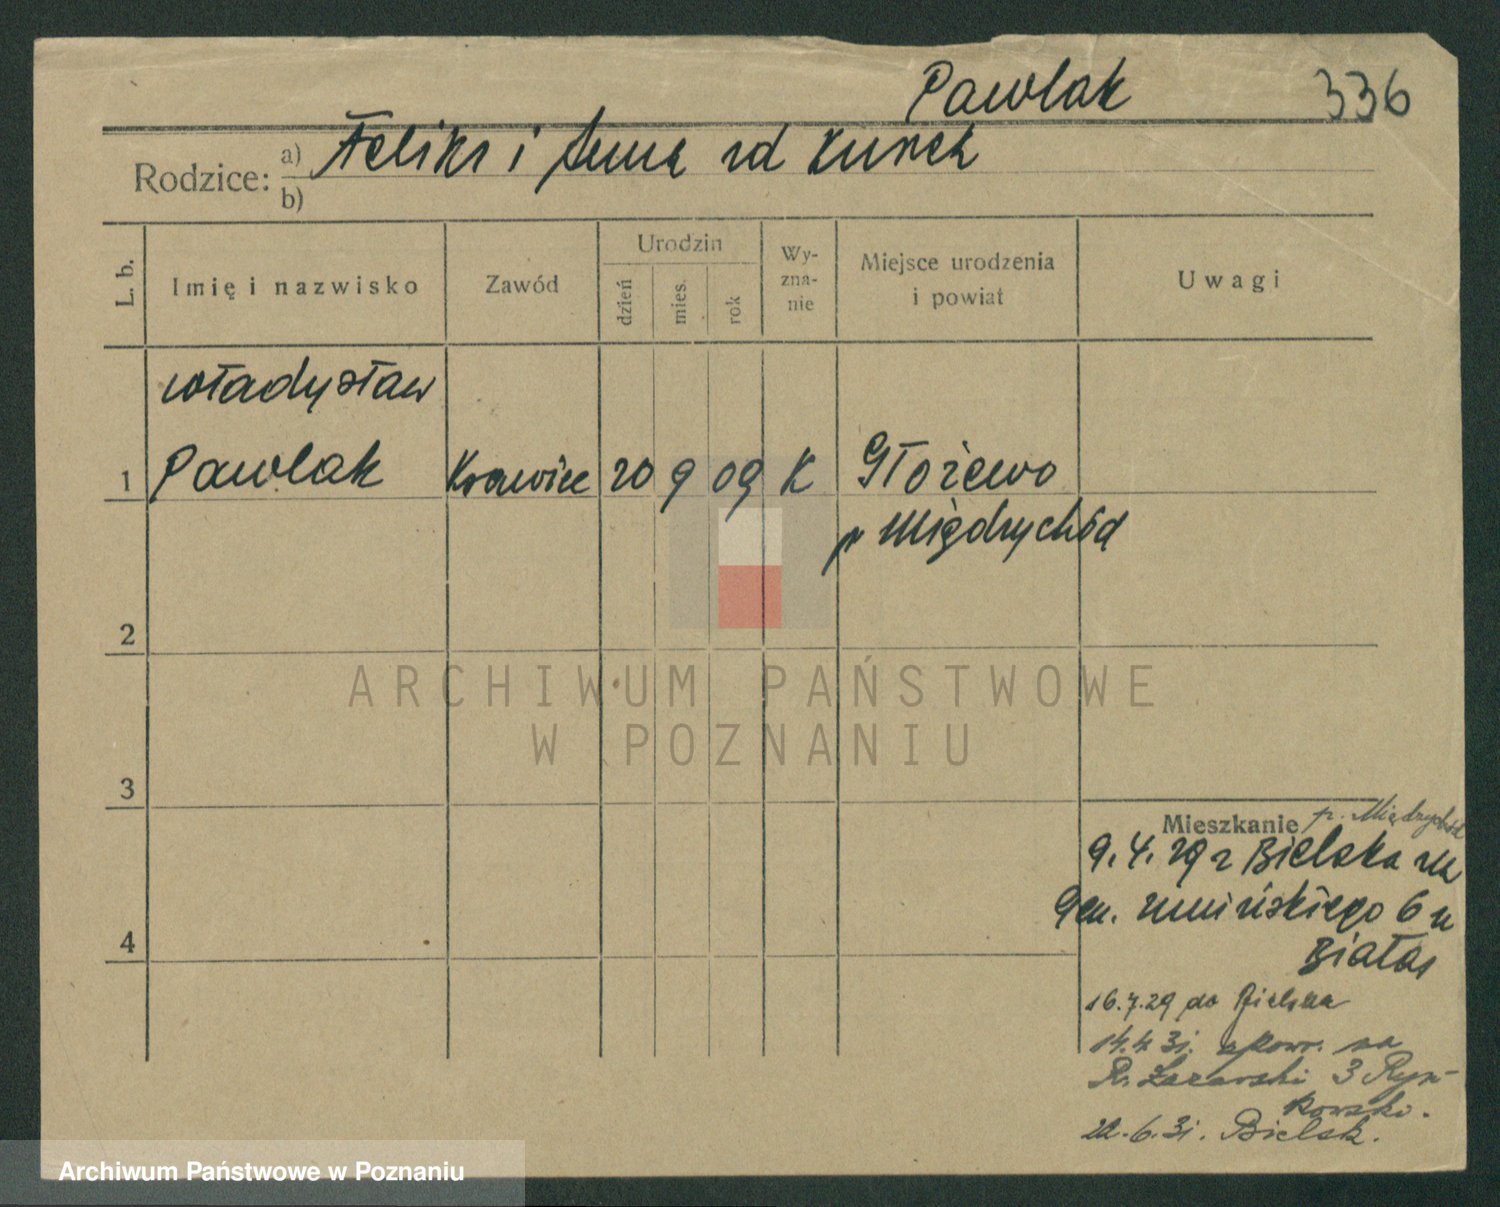 Pawlak 336
Rodzice: a) Feliks i Anna zd Kunek
b)
L. b. Imię i nazwisko Zawód Urodzin dzień mies. rok Wy-zna-nie Miejsce urodzenia i powiat Uwagi
Władysław
1 Pawlak Krawiec 20 9 09 K Głożewo
p Międzychód
2
3
Mieszkanie p. Międzychód
9.4.29 z Bielska na
Gen. Umińskiego 6 u
4 Białas
16.7.29 do Bielska
14.4.31. z powr. na
R. Łazarski 3 Ryn-
kowski.
22.6.31. Bielsk.
ARCHIWUM PAŃSTWOWE
W POZNANIU
Archiwum Państwowe w Poznaniu